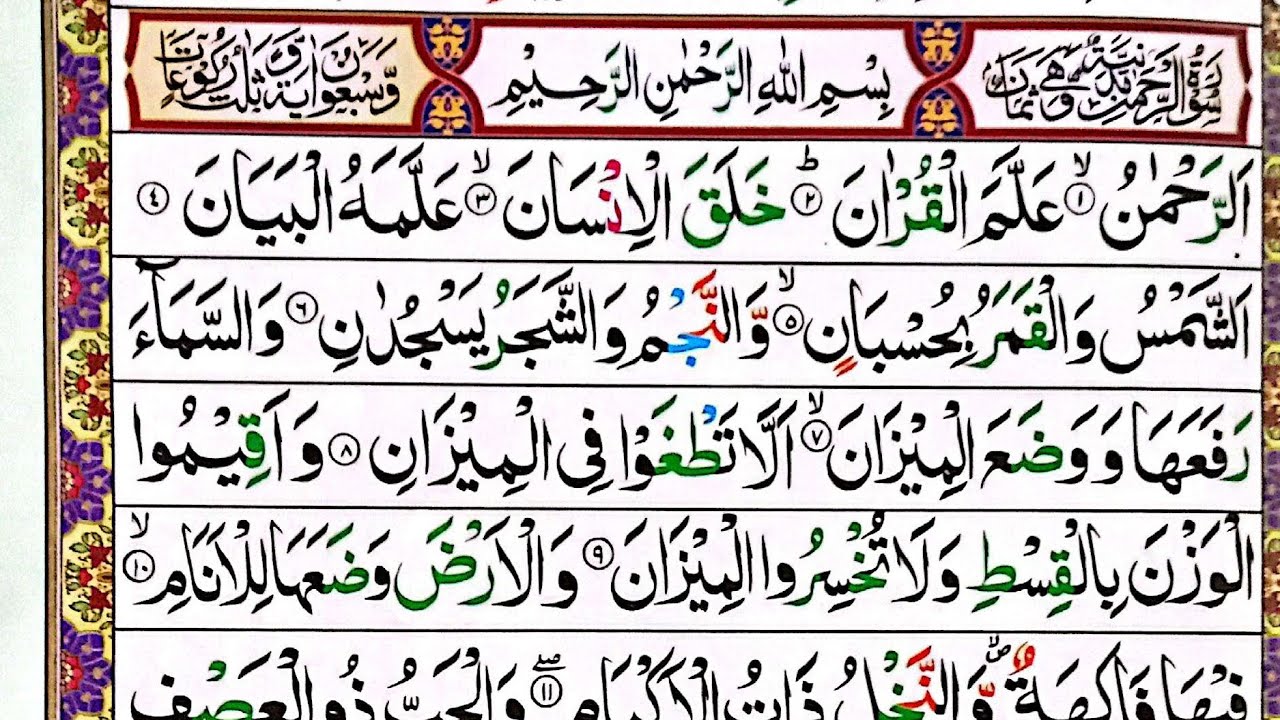 سُوْرَةُ الرَّحْمٰنِ مَدَنِيَّةٌ وَّهِيَ ثَمَانٌ بِسْمِ اللهِ الرَّحْمٰنِ الرَّحِيْمِ وَّسَبْعُوْنَ اٰيَةً وَّثَلٰثُ رُكُوْعَاتٍ
اَلرَّحْمٰنُ ۙ﴿۱﴾ عَلَّمَ الْقُرْاٰنَ ؕ﴿۲﴾ خَلَقَ الْاِنْسَانَ ۙ﴿۳﴾ عَلَّمَهُ الْبَيَانَ ﴿۴﴾
اَلشَّمْسُ وَالْقَمَرُ بِحُسْبَانٍ ۙ﴿۵﴾ وَّالنَّجْمُ وَالشَّجَرُ يَسْجُدٰنِ ﴿۶﴾ وَالسَّمَآءَ
رَفَعَهَا وَوَضَعَ الْمِيْزَانَ ۙ﴿۷﴾ اَلَّا تَطْغَوْا فِى الْمِيْزَانِ ﴿۸﴾ وَاَقِيْمُوا
الْوَزْنَ بِالْقِسْطِ وَلَا تُخْسِرُوا الْمِيْزَانَ ﴿۹﴾ وَالْاَرْضَ وَضَعَهَا لِلْاَنَامِ ۙ﴿۱۰﴾
فِيْهَا فَاكِهَةٌ وَّالنَّخْلُ ذَاتُ الْاَكْمَامِ ۖ﴿۱۱﴾ وَالْحَبُّ ذُو الْعَصْفِ